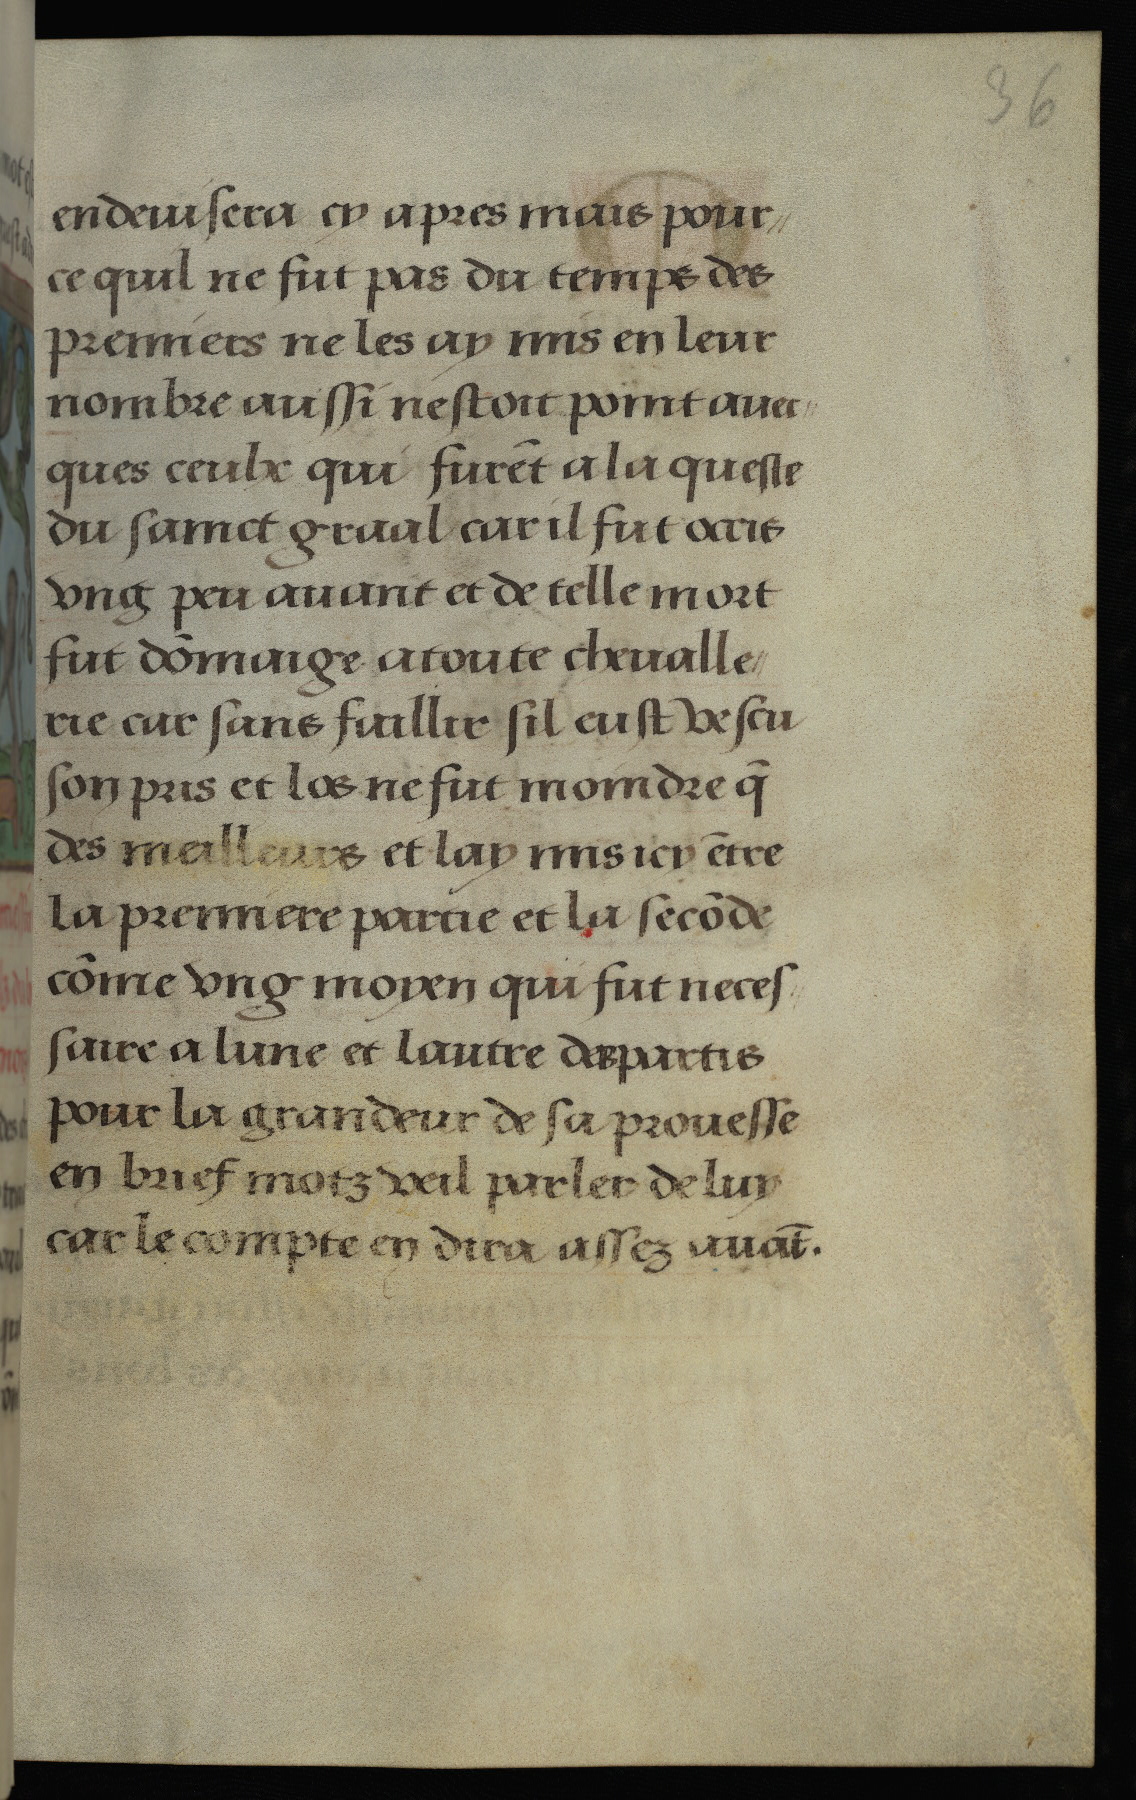 36
en deuisera cy apres mais pour//
ce quil ne fut pas du temps des
premiers ne les ay mis en leur
nombre aussi nestoit point auec//
ques ceulx qui furēt a la queste
du sainct graal car il fut occis
vng peu auant et de telle mort
fut dōmaige a toute cheualle//
rie car sans faillir sil eust vescu
son pris et los ne fut moindre q̄
des meilleurs et lay mis icy ētre
la premiere partie et la secōde
cōme vng moyen qui fut neces//
saire a lune et lautre des partis
pour la grandeur de sa prouesse
en brief motz veil parler de luy
car le compte en dira assez auāt.